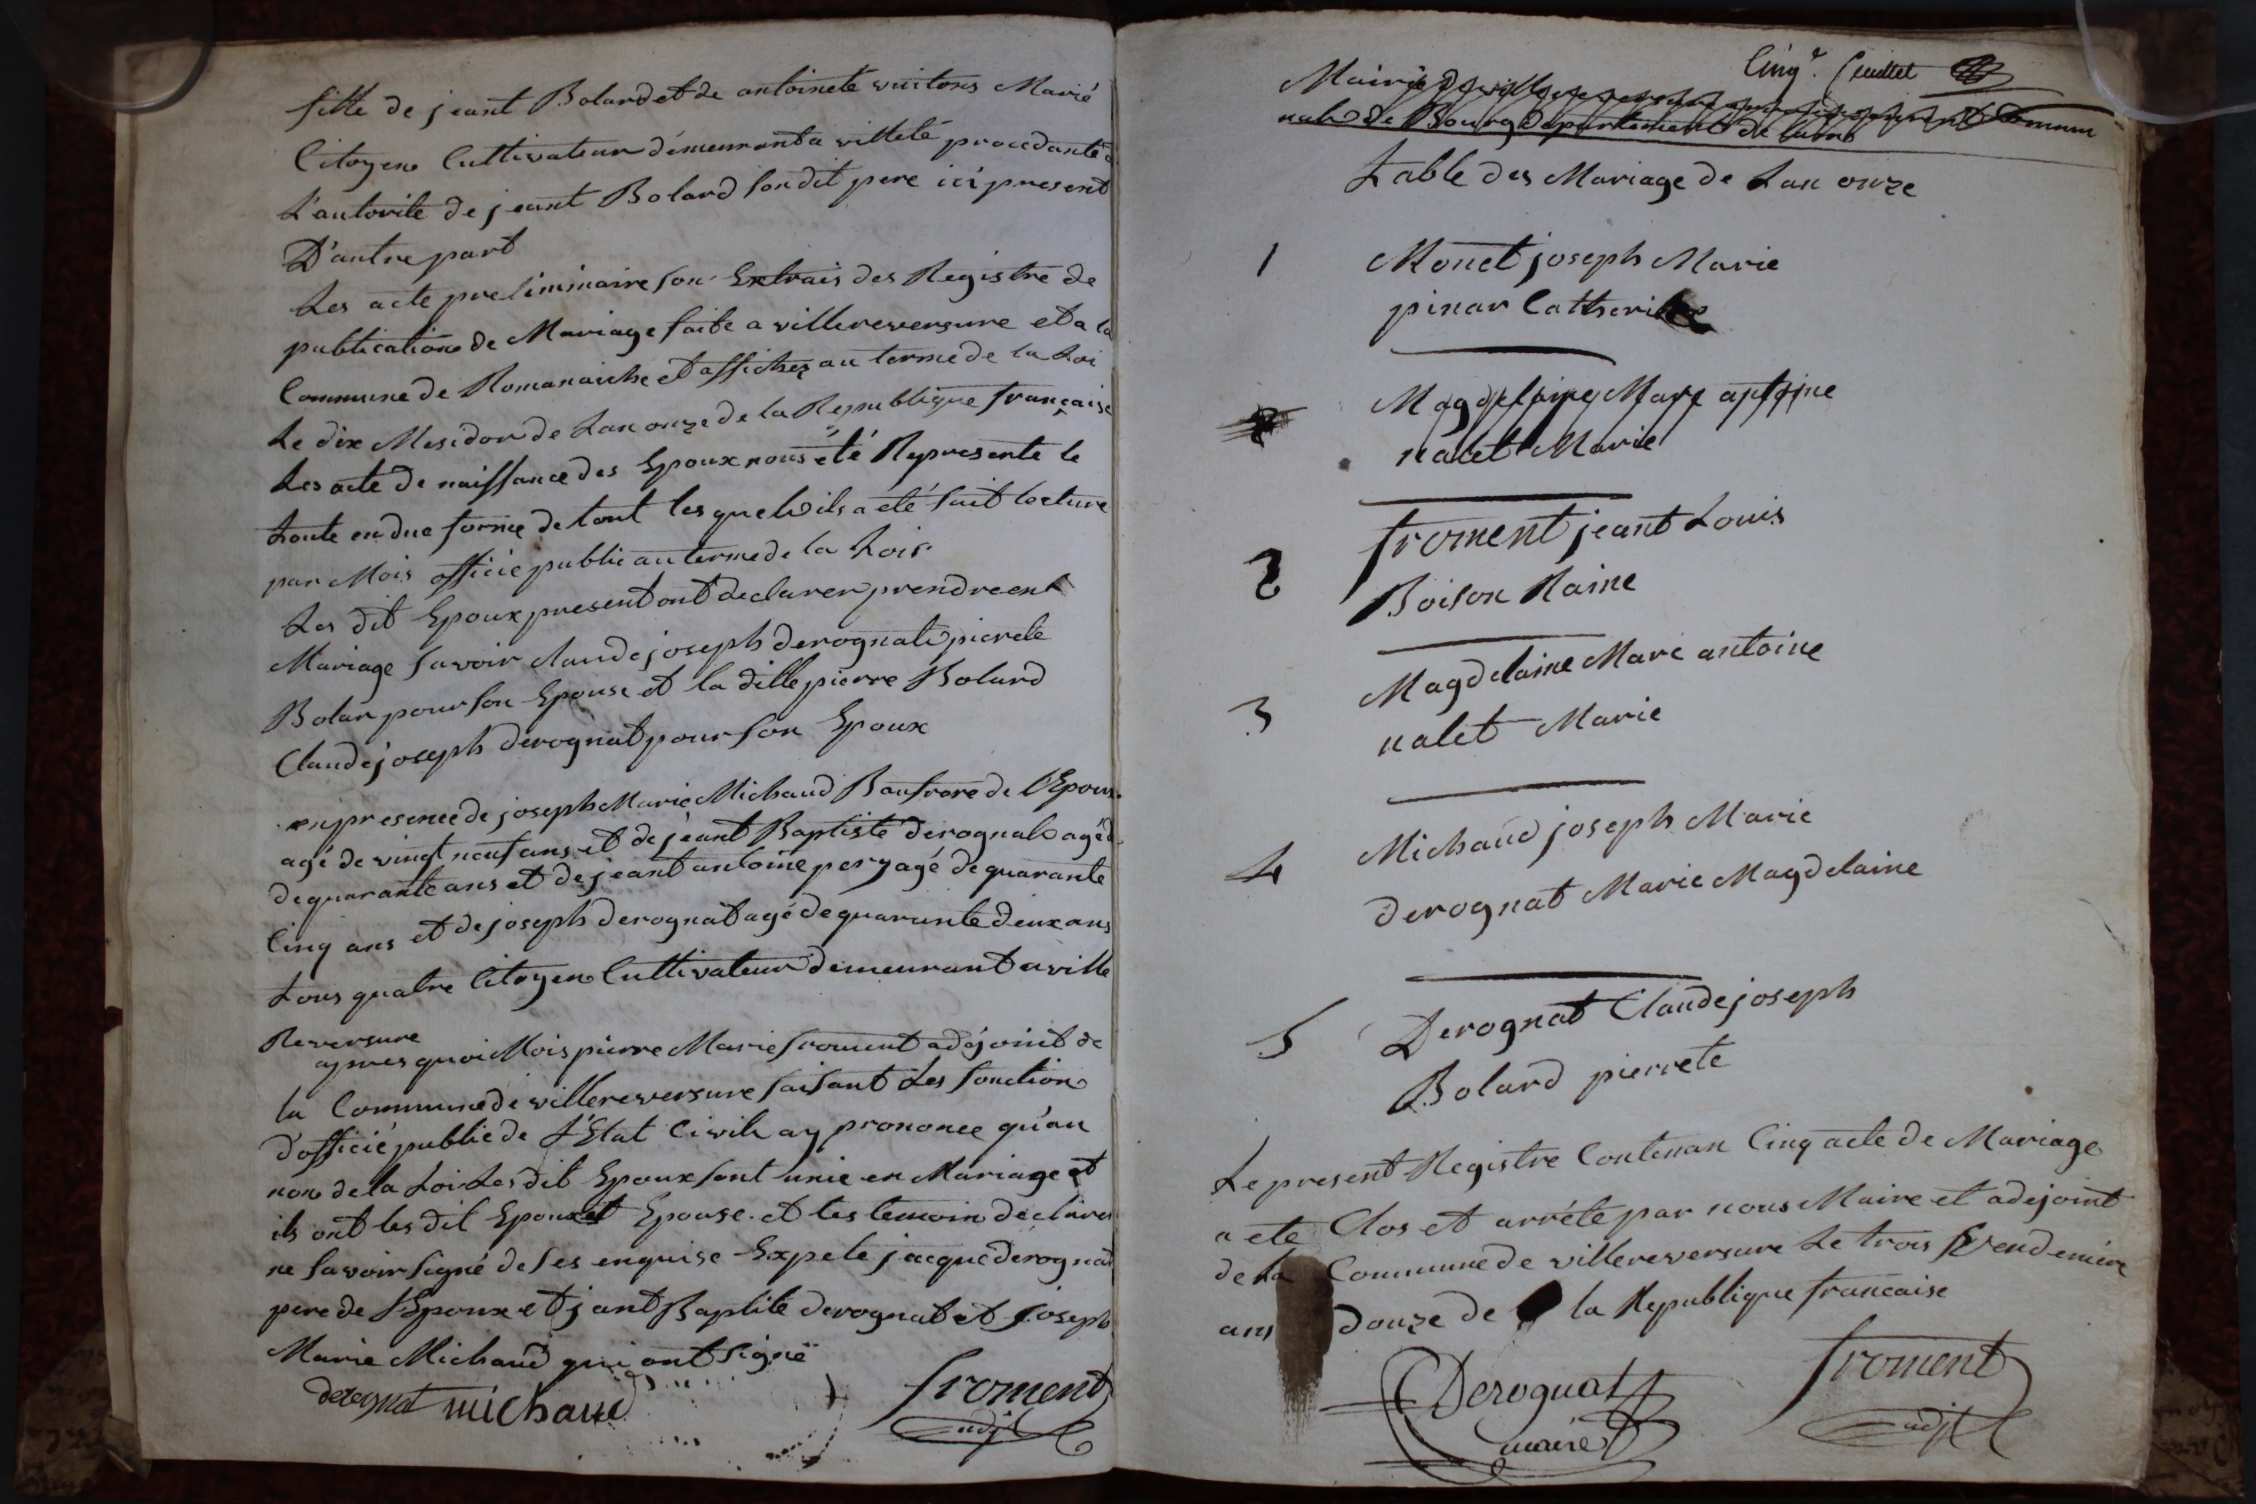 fille de jeant Bolard et de antoinete vuitons Marié
Citoyens Cultivateur démeurant a villete procedante
L'autorite de jeant Bolard sondit pere ici present
D'autre part
Les acte preliminaire son Extrais des Registre de
publications de Mariage faite a villereversure et a la
Commune de Romanaiche et affichez au terme de la Loi
Le dix Mesidor de Lan onze de la Republique française
Les acte de naissance des Epoux nous été Represente le
toute en due forme de tout les quels ils a eté fait lecture
par Mois officié public au terme de la Lois
Les dit Epoux present ont declarer prendre en
Mariage savoir claude joseph derognat pierete
Bolar pour son Epouse et la ditte pierre Bolard
Claude joseph derognat pour son Epoux
en presence de joseph Marie Michaud Baufrere de l'Epoux
agé de vingt neuf ans et de jeant Baptiste derognat agé
de quarante ans et de jeant antoine pery agé de quarante
Cinq ans et de joseph derognat agé de quarante deux ans
tous quatre Citoyens Cultivateur demeurant a ville
Reversure
apres quoi Mois pierre Marie froment adéjoint de
la Commune de villereversure faisant Les fonction
d'officié public de L'Etat Civils ay prononce qu'au
nom de la Loi Les dit Epoux sont unie en Mariage et
ils ont les dit Epoux et Epouse et les temoin declarer
ne savoir signé de ses enquise Expete jacque derognat
pere de l'Epoux et jant Baptite derognat et joseph
Marie Michaud qui ont signé
derognat michaud froment
adjt
Cinq.e feuillet
Mairie de villereversure
nale de Bourg departement de
Table des Mariage de Lan onze
1 Monet joseph Marie
pinar Catherine
Magdelaine Marc antoine
nalet Marie
2 froment jeant Louis
Boison Raine
3 Magdelaine Marc antoine
nalet Marie
4 Michaud joseph Marie
derognat Marie Magdelaine
5 Derognat Claude joseph
Bolard pierrete
Le present Registre Contenan Cinq acte de Mariage
a ete Clos et arréte par nous Maire et adejoint
de la Commune de villereversure Le trois Vendemiere
ans douze de la Republique francaise
Derognat froment
maire adjt